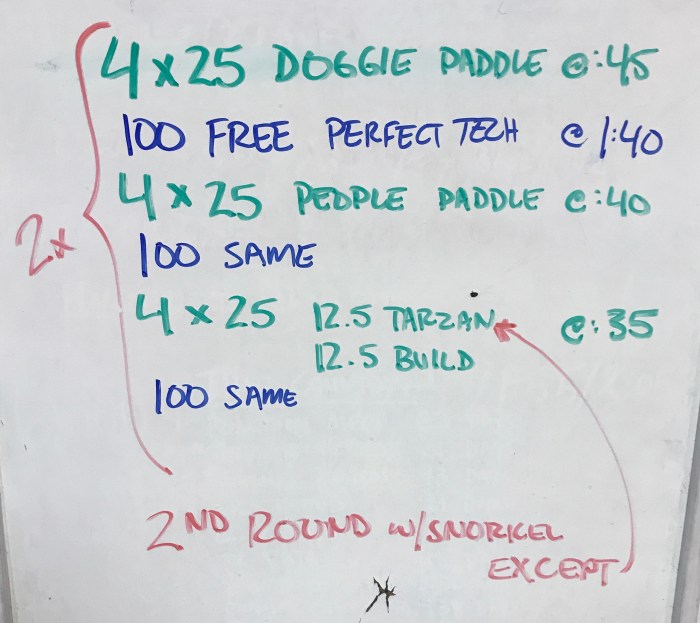 4 x 25 DOGGIE PADDLE @ :45
100 FREE PERFECT TECH @ 1:40
4 x 25 PEOPLE PADDLE @ :40
2x
100 SAME
4 x 25 12.5 TARZAN @ :35
12.5 BUILD
100 SAME
2ND ROUND w/SNORKEL
EXCEPT